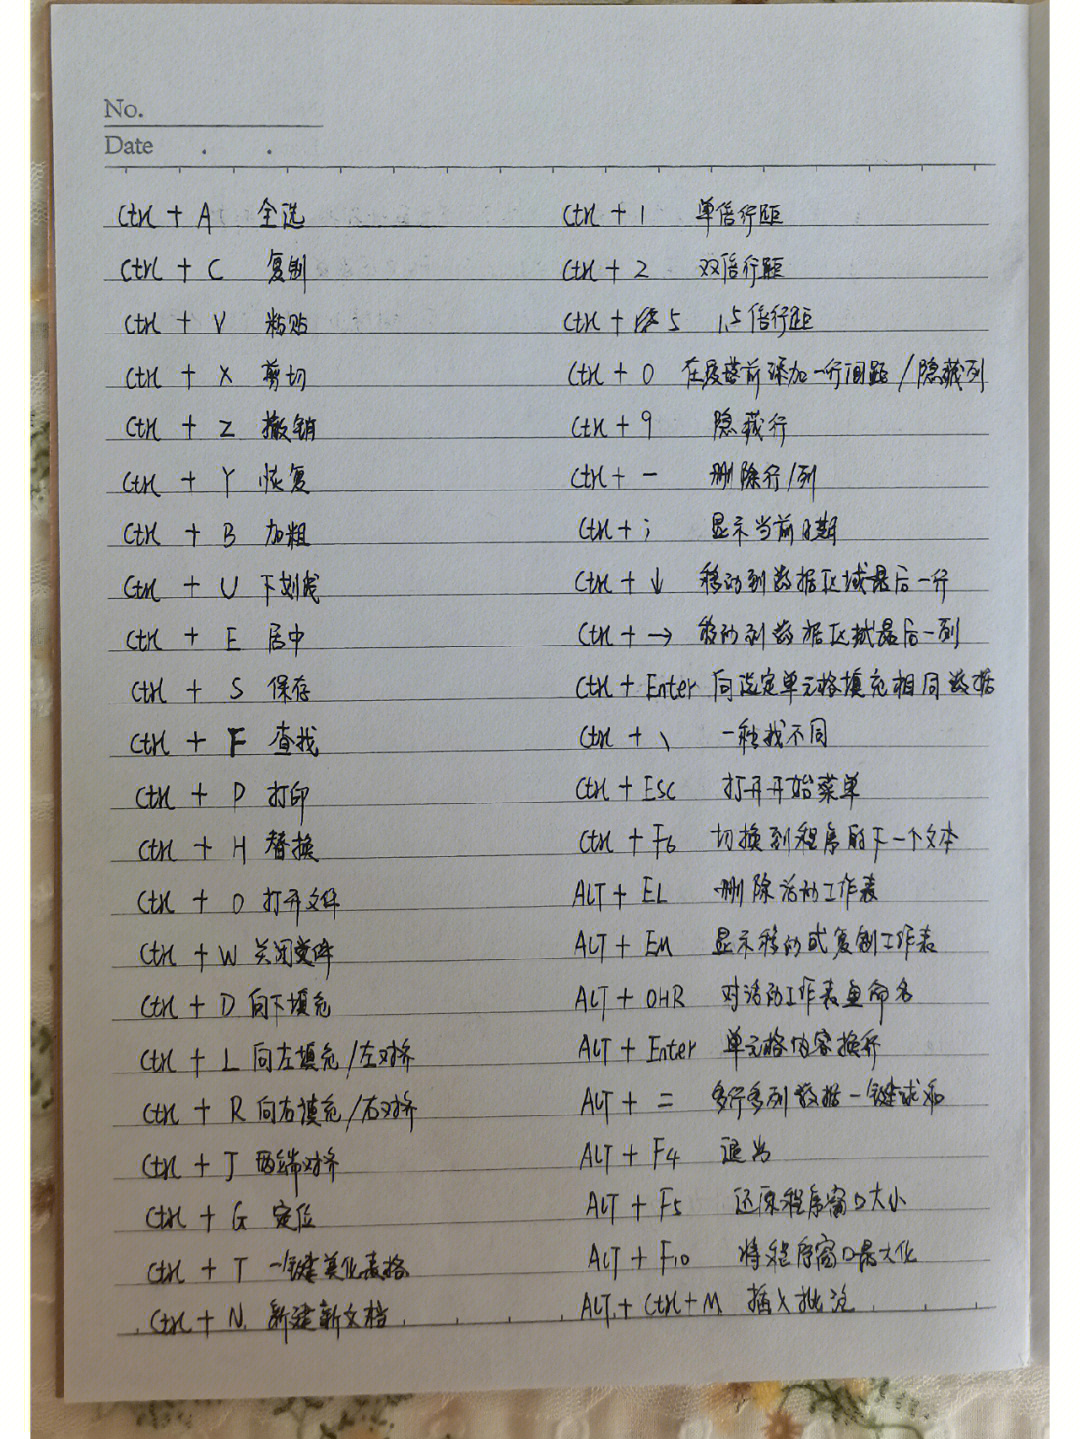 No.
Date
Ctrl + A 全选
Ctrl + C 复制
Ctrl + V 粘贴
Ctrl + X 剪切
Ctrl + Z 撤销
Ctrl + Y 恢复
Ctrl + B 加粗
Ctrl + U 下划线
Ctrl + E 居中
Ctrl + S 保存
Ctrl + F 查找
Ctrl + P 打印
Ctrl + H 替换
Ctrl + O 打开文件
Ctrl + W 关闭文件
Ctrl + D 向下填充
Ctrl + L 向左填充/左对齐
Ctrl + R 向右填充/右对齐
Ctrl + J 两端对齐
Ctrl + G 定位
Ctrl + T 一键美化表格
Ctrl + N 新建新文档
Ctrl + 1 单倍行距
Ctrl + 2 双倍行距
Ctrl + 5 1.5倍行距
Ctrl + 0 在段落前添加一行间距/隐藏列
Ctrl + 9 隐藏行
Ctrl + - 删除行/列
Ctrl + ; 显示当前日期
Ctrl + ↓ 移动到数据区域最后一行
Ctrl + → 移动到数据区域最后一列
Ctrl + Enter 向选定单元格填充相同数据
Ctrl + \ 一秒找不同
Ctrl + ESC 打开开始菜单
Ctrl + F6 切换到程序的下一个文本
ALT + EL 删除活动工作表
ALT + EM 显示移动或复制工作表
ALT + OHR 对活动工作表重命名
ALT + Enter 单元格内容换行
ALT + = 多行多列数据一键求和
ALT + F4 退出
ALT + F5 还原程序窗口大小
ALT + F10 将程序窗口最大化
ALT + Ctrl + M 插入批注